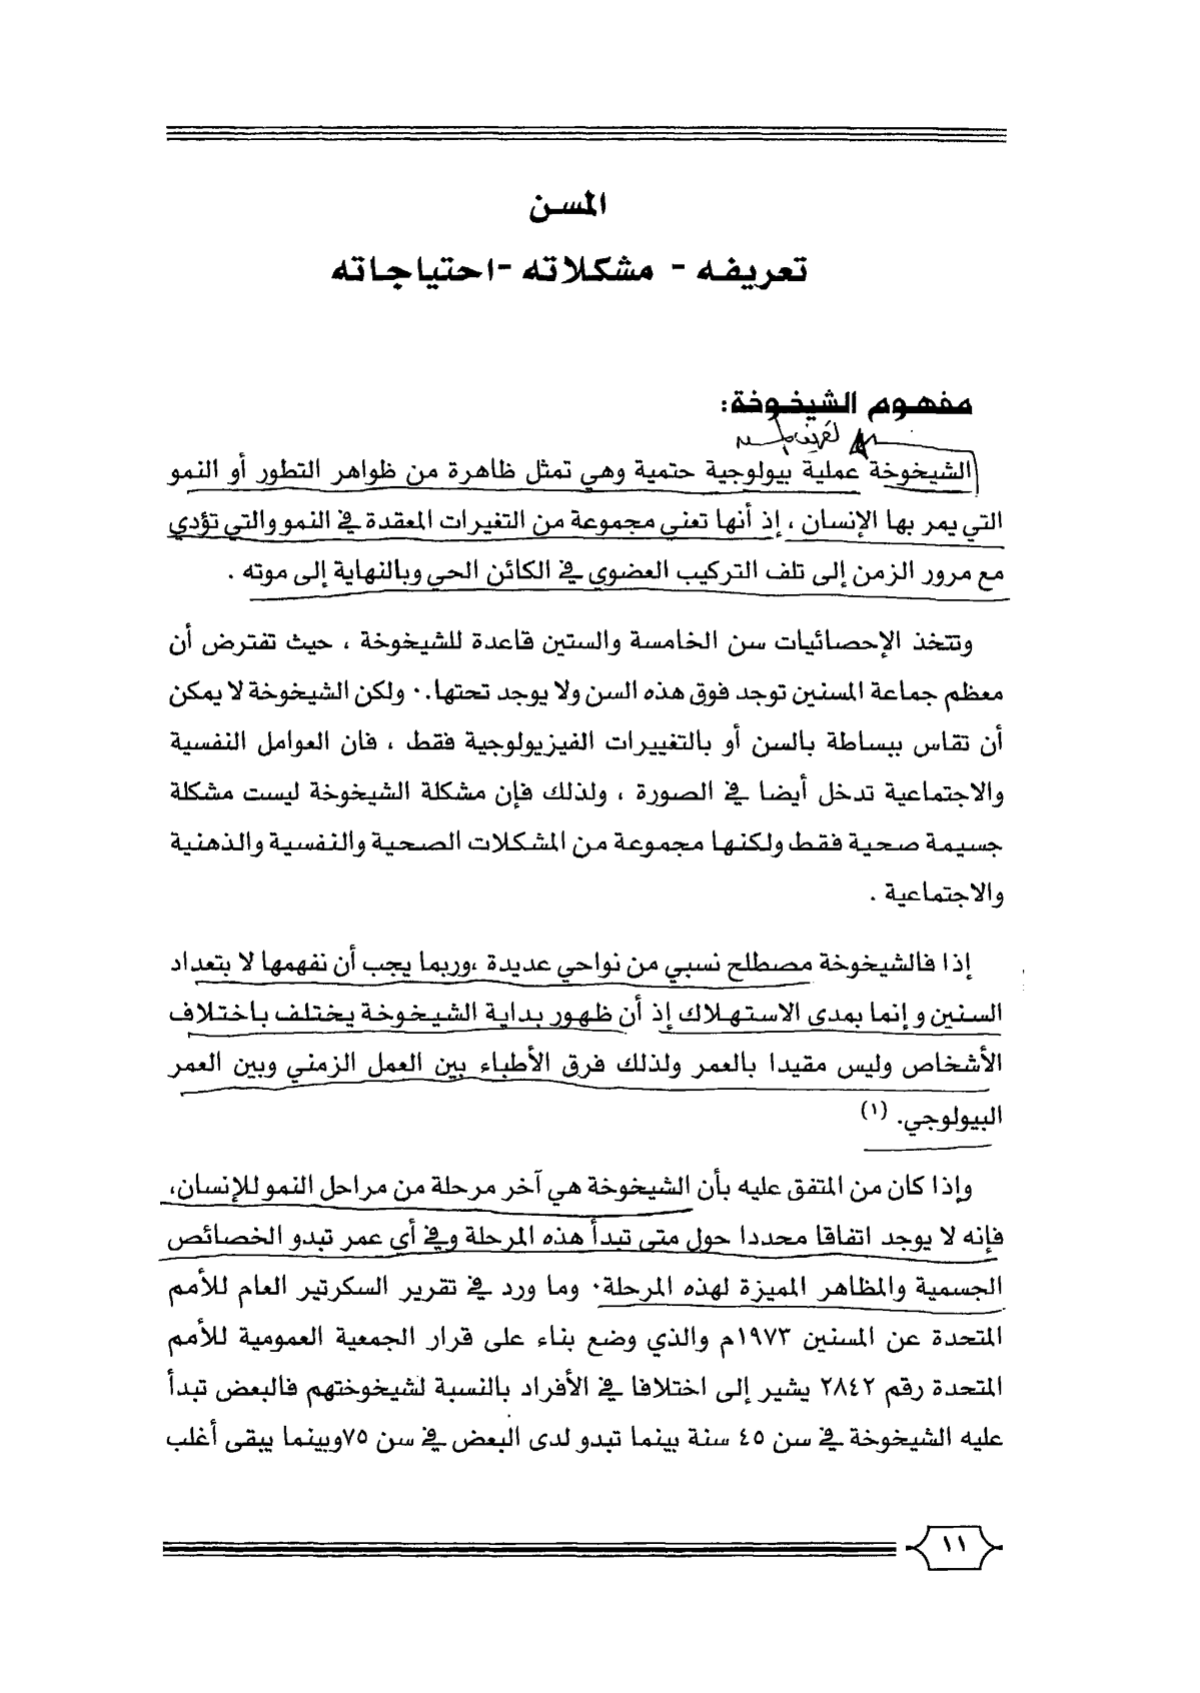 المسن
تعريفه - مشكلاته -احتياجاته
مفهوم الشيخوخة:
الشيخوخة عملية بيولوجية حتمية وهي تمثل ظاهرة من ظواهر التطور أو النمو
التي يمر بها الإنسان ، إذ أنها تعني مجموعة من التغيرات المعقدة في النمو والتي تؤدي
مع مرور الزمن إلى تلف التركيب العضوي في الكائن الحي وبالنهاية إلى موته .
وتتخذ الإحصائيات سن الخامسة والستين قاعدة للشيخوخة ، حيث تفترض أن
معظم جماعة المسنين توجد فوق هذه السن ولا يوجد تحتها.٠ ولكن الشيخوخة لا يمكن
أن تقاس ببساطة بالسن أو بالتغييرات الفيزيولوجية فقط ، فان العوامل النفسية
والاجتماعية تدخل أيضا في الصورة ، ولذلك فإن مشكلة الشيخوخة ليست مشكلة
جسيمة صحية فقط ولكنها مجموعة من المشكلات الصحية والنفسية والذهنية
والاجتماعية .
إذا فالشيخوخة مصطلح نسبي من نواحي عديدة ،وربما يجب أن نفهمها لا بتعداد
السنين و إنما بمدى الاستهلاك إذ أن ظهور بداية الشيخوخة يختلف باختلاف
الأشخاص وليس مقيدا بالعمر ولذلك فرق الأطباء بين العمل الزمني وبين العمر
البيولوجي. (١)
وإذا كان من المتفق عليه بأن الشيخوخة هي آخر مرحلة من مراحل النمو للإنسان،
فإنه لا يوجد اتفاقا محددا حول متى تبدأ هذه المرحلة وفي أي عمر تبدو الخصائص
الجسمية والمظاهر المميزة لهذه المرحلة٠ وما ورد في تقرير السكرتير العام للأمم
المتحدة عن المسنين ١٩٧٣م والذي وضع بناء على قرار الجمعية العمومية للأمم
المتحدة رقم ٢٨٤٢ يشير إلى اختلافا في الأفراد بالنسبة لشيخوختهم فالبعض تبدأ
عليه الشيخوخة في سن ٤٥ سنة بينما تبدو لدى البعض في سن ٧٥وبينما يبقى أغلب
١١